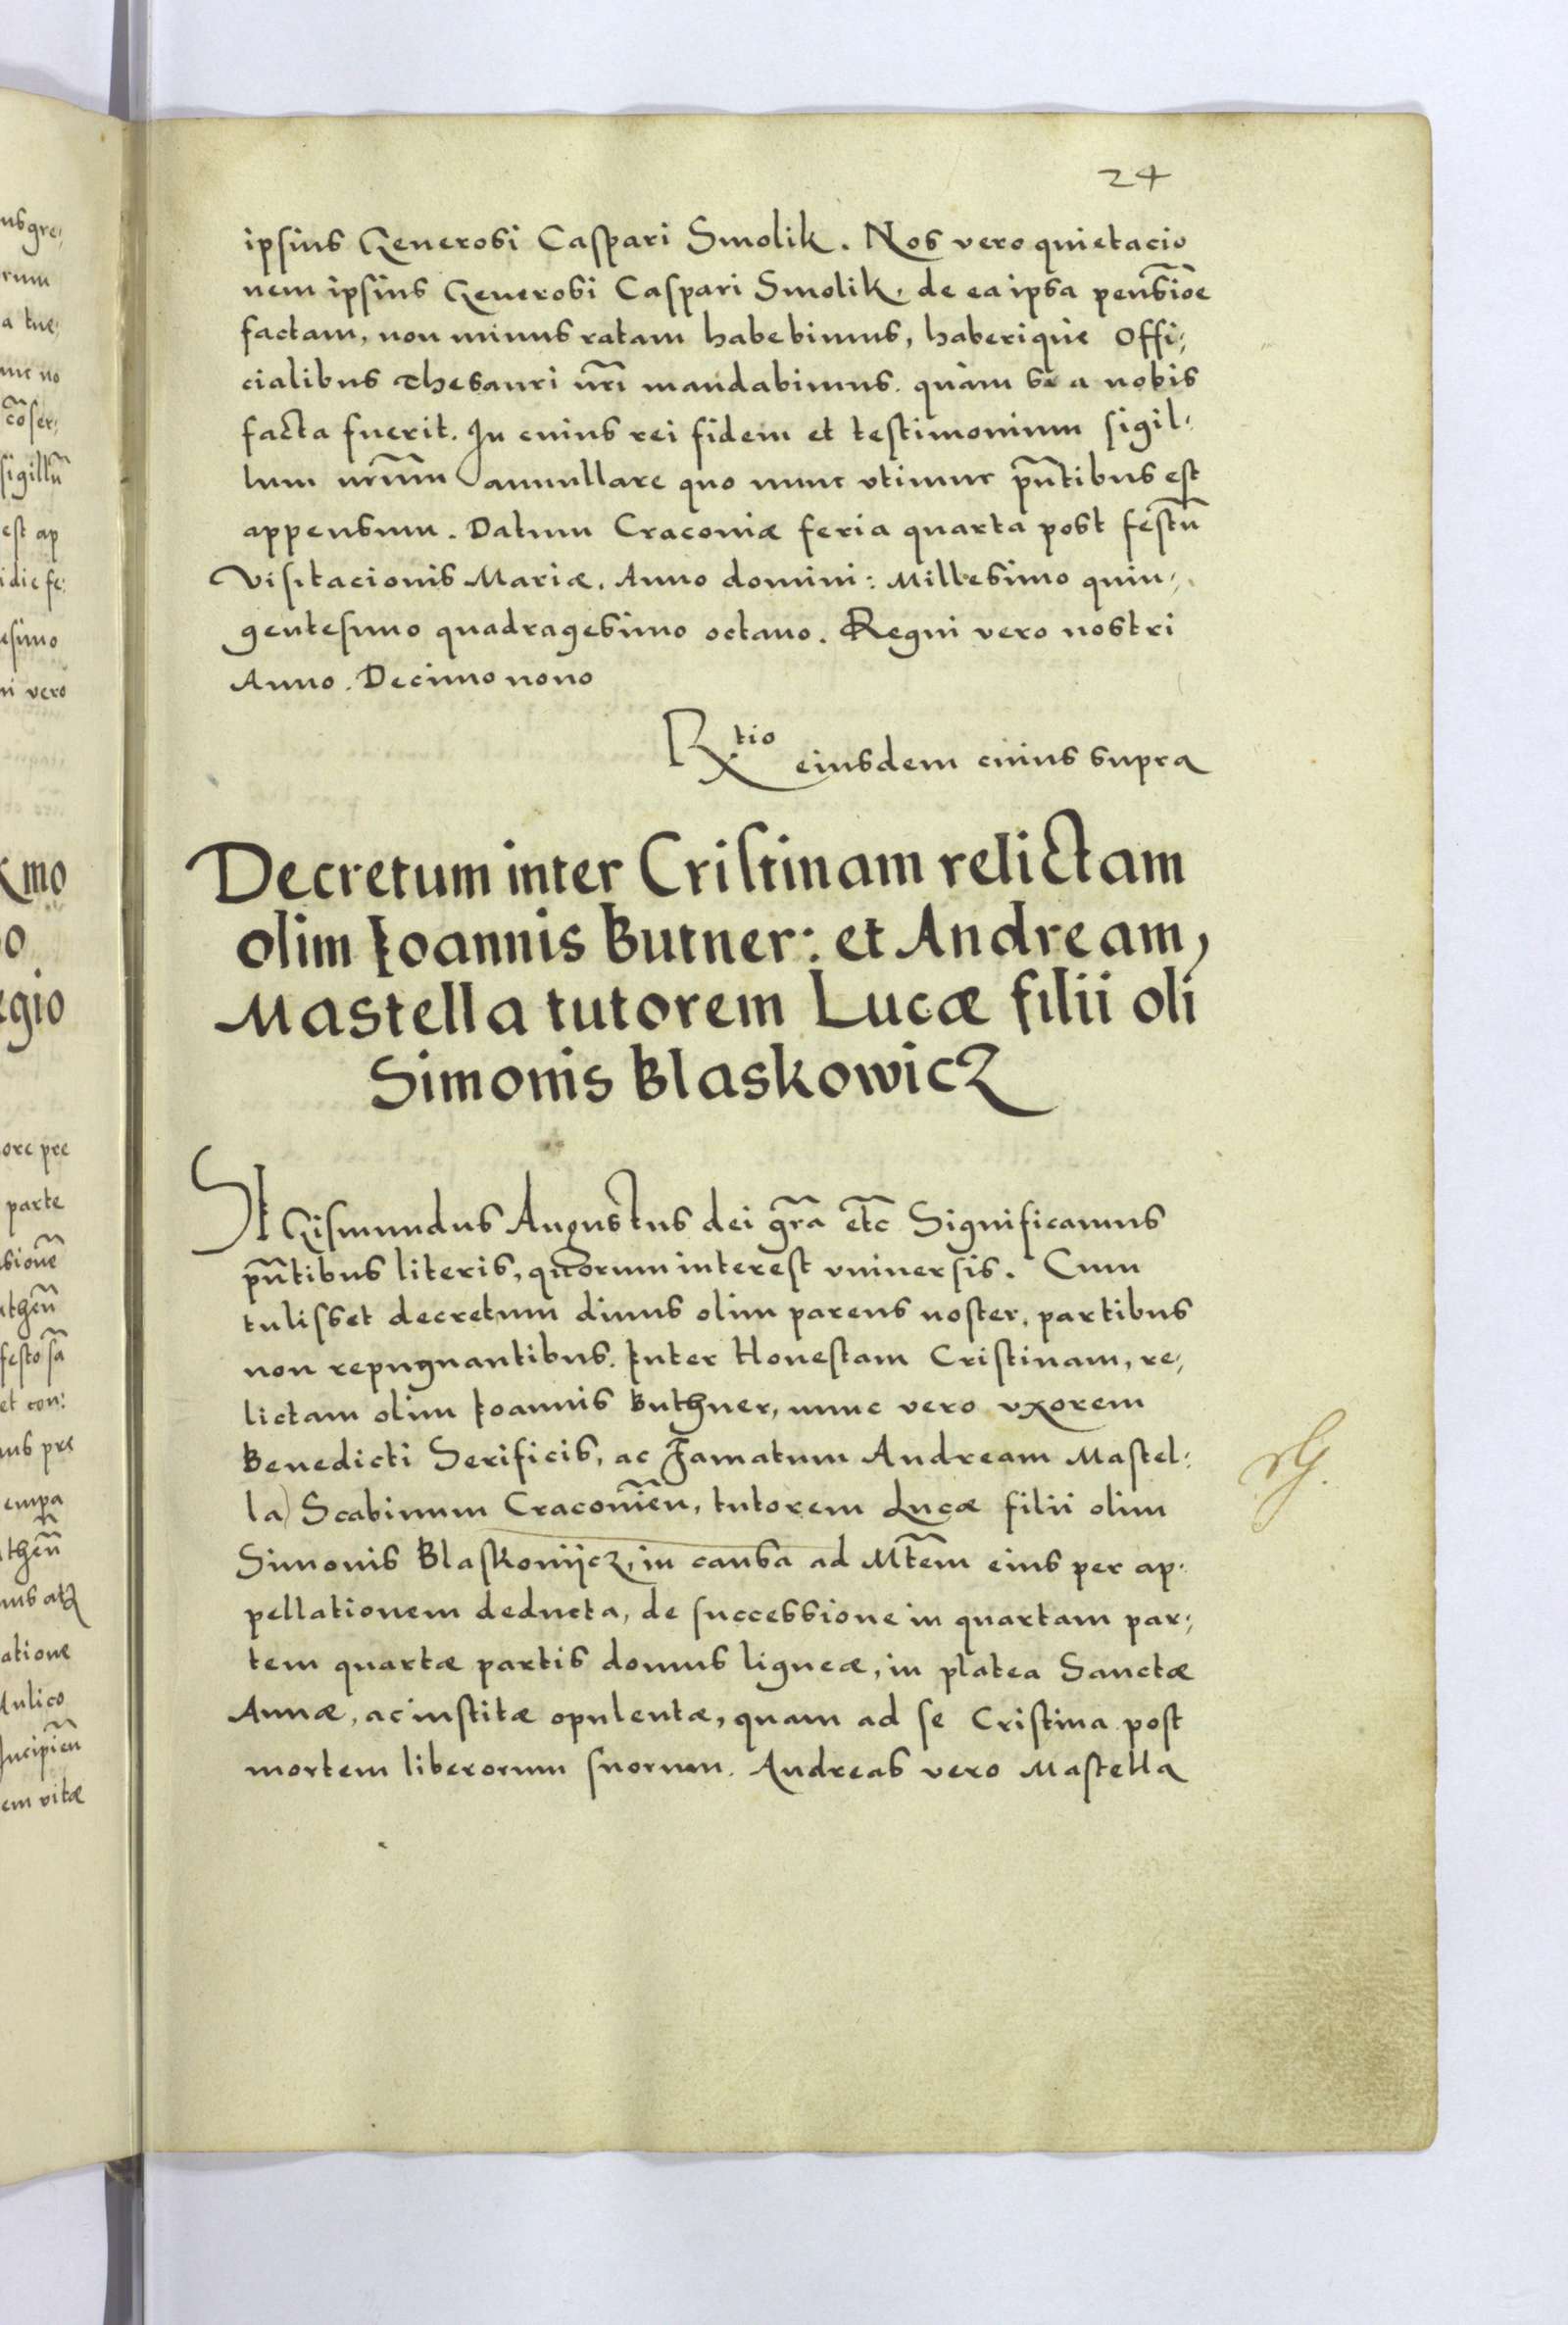 24
ipsius Generosi Caspari Smolik. Nos vero quietacio
nem ipsius Generosi Caspari Smolik, de ea ipsa pensiōe
factam, non minus ratam habebimus, haberique Offi⸗
cialibus Thesauri nr̃i mandabimus. quàm si a nobis
facta fuerit. In cuius rei fidem et testimonium sigil⸗
lum nr̃um annullare quo nunc vtimur pñtibus est
appensum. Datum Cracouiæ feria quarta post festũ
Visitacionis Mariæ. Anno domini: Millesimo quin⸗
gentesimo quadragesimo octauo. Regni vero nostri
Anno. Decimo nono
Rtio eiusdem cuius supra
Decretum inter Cristinam relictam
olim Ioannis Butner: et Andream,
Mastella tutorem Lucæ filii oli
Simonis Blaskowicz
SIGismundus Augustus dei gr̃a etc̃ Significamus
pñtibus literis, quorum interest vniuersis. Cum
tulisset decretum diuus olim parens noster, partibus
non repugnantibus. Inter Honestam Cristinam, re⸗
lictam olim Ioannis Buthner, nunc vero vxorem
Benedicti Serificis, ac Famatum Andream Mastel⸗
la) Scabinum Cracouieñ, tutorem Lucæ filii olim
Simonis Blaskouijcz, in causa ad Mt̃em eius per ap⸗
pellationem deducta, de successione in quartam par⸗
tem quartæ partis domus ligneæ, in platea Sanctæ
Annæ, ac institæ opulentæ, quam ad se Cristina post
mortem liberorum suorum. Andreas vero Mastella